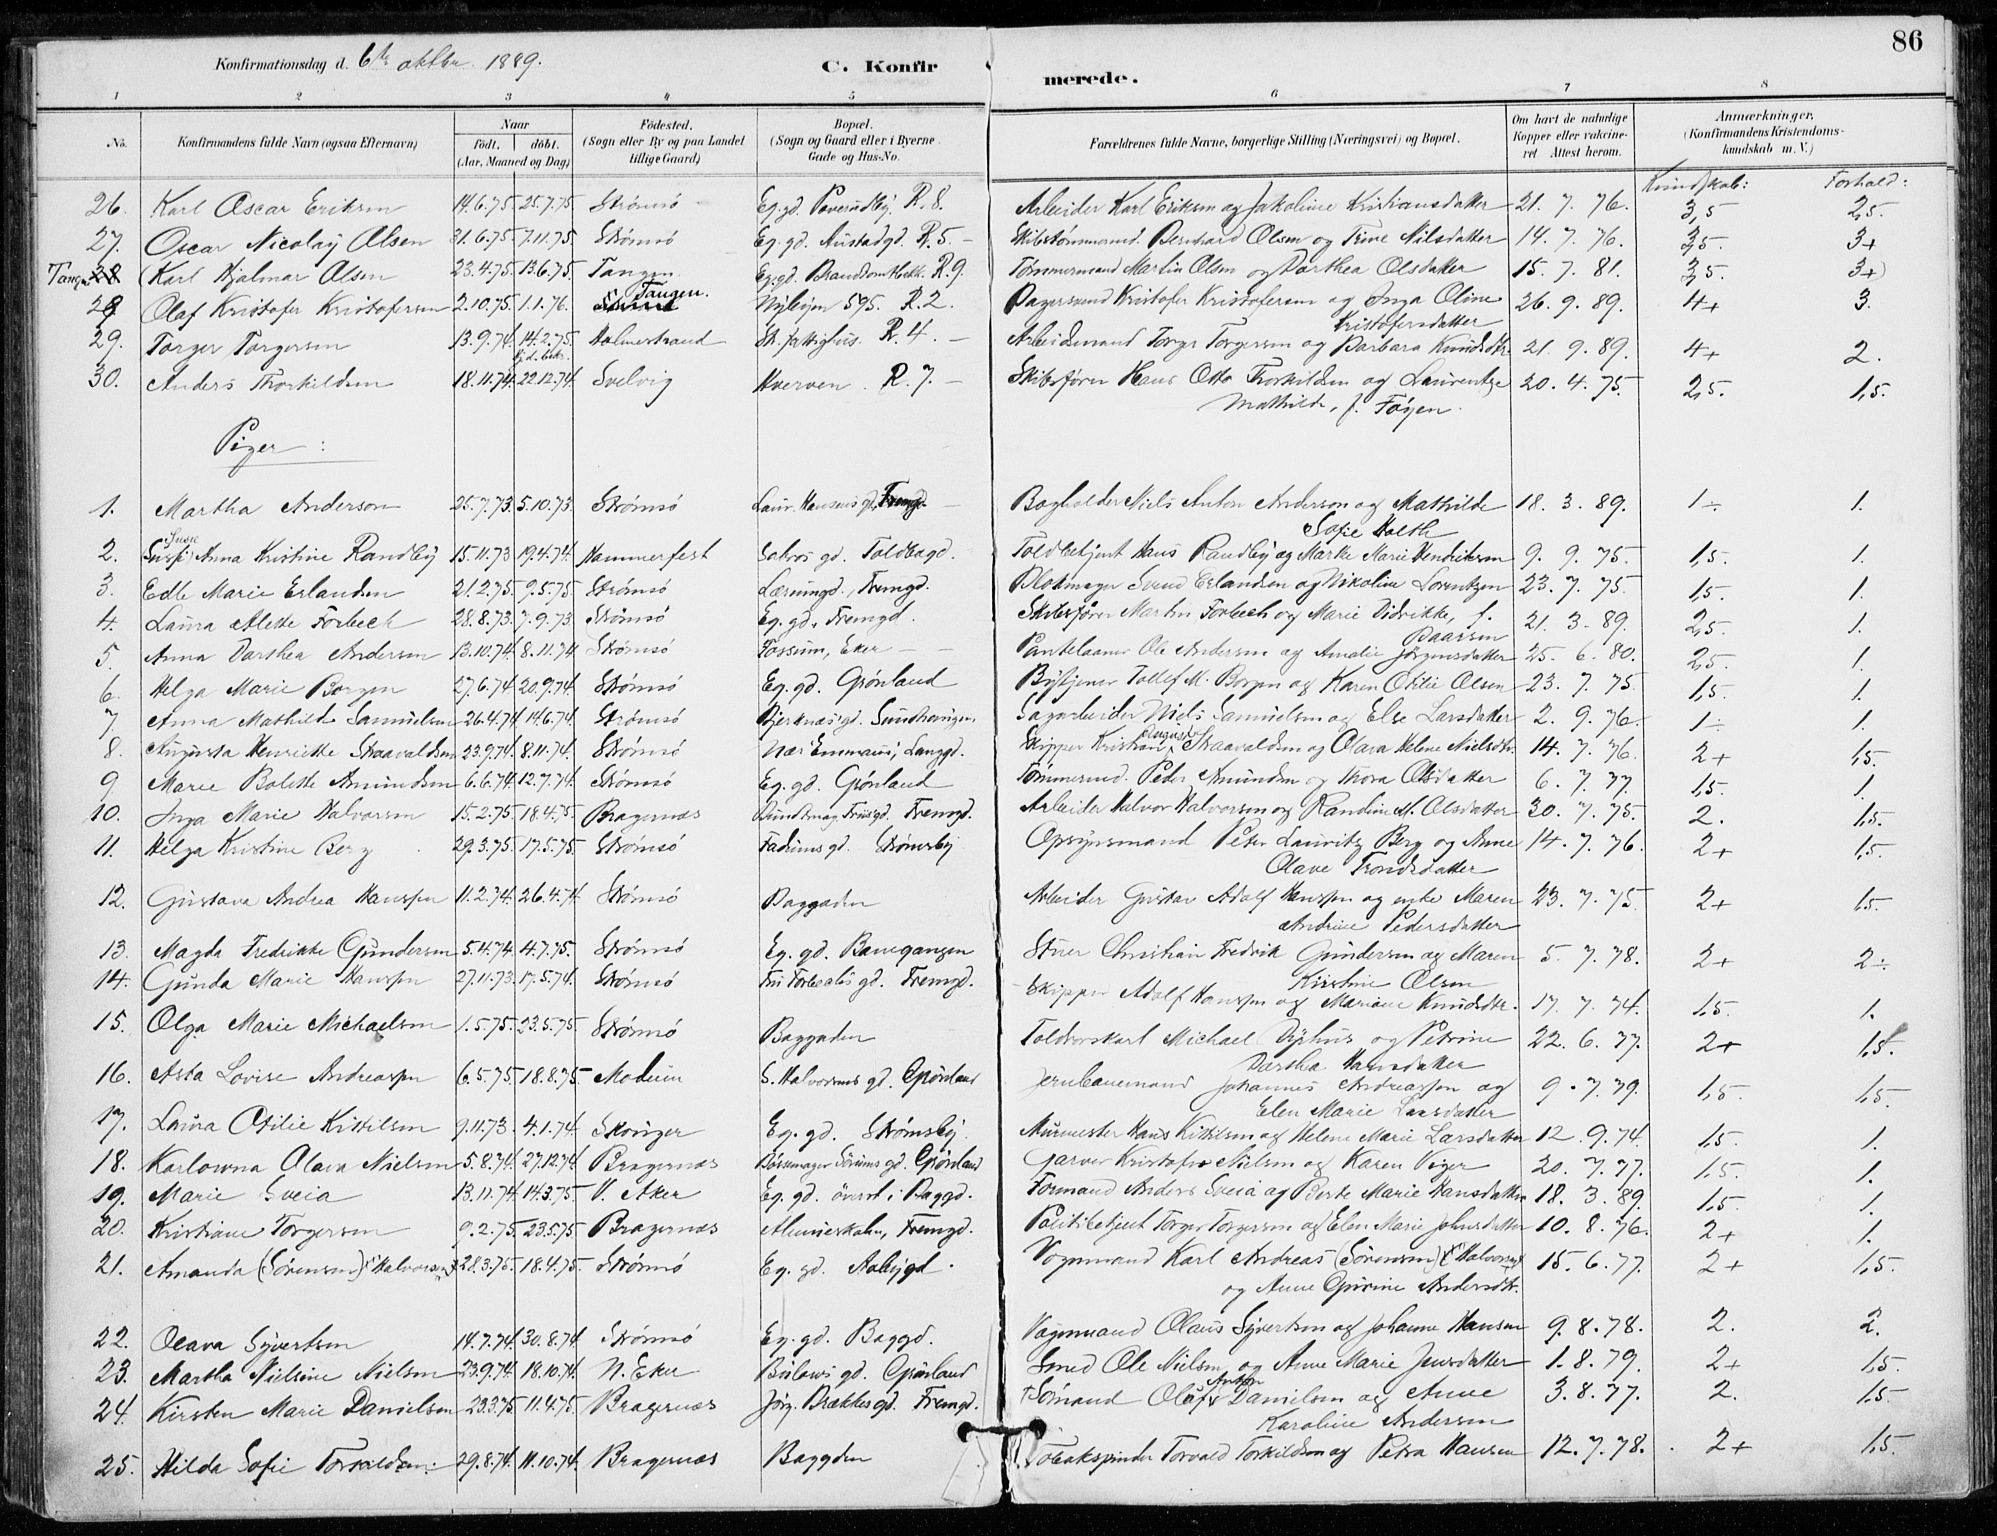 86
Konfirmationsdag d. 6te oktbr. 1889. C. Konfirmerede.
1 2 3 4 5 6 7 8
No. Konfirmandens fulde Navn (ogsaa Efternavn) Naar født. døbt. (Aar, Maaned og Dag) Fødested. (Sogn eller By og paa Landet tillige Gaard) Bopæl. (Sogn og Gaard eller i Byerne Gade og Hus-No. Forældrenes fulde Navne, borgerlige Stilling (Næringsvei) og Bopæl. Om havt de naturlige Kopper eller vakcineret Attest herom. Anmærkninger, (Konfirmandens Kristendomskundskab m. V.)
Kundskab: Forhold:
26. Karl Oscar Eriksen 14.6.75 25.7.75 Strømsø Eg. gd. R. 8. Arbeider Karl Eriksen og Jakoline Kristiansdatter 21. 7. 76. 3,5 2,5.
27. Oscar Nicolay Olsen 21.6.75 7.11.75. Strømsø Eg. gd. Austadgd. R. 5. – Skibstømmermd. Bernhard Olsen og Trine Nilsdatter 14. 7. 76. 3,5. 3+
Tangen 28 (Karl Hjalmar Olsen 23.4.75 13.6.75. Tangen Eg. gd. R. 9. Tømmermand Martin Olsen og Dorthea Olsdatter 15. 7. 81. 3,5. 3+)
28 Olaf Kristofer Kristofersen 2.10.75. 1.1.76. Tangen. Nybyen 595. R. 2. Kristofer Kristofersen og Inga Oline Kristofersdatter 26. 9. 89. 4+ 3.
29. Torger Torgersen 13.9.74 14.2.75. Holmestrand St. fattighus. R. 4. – Arbeidsmand Torger Torgersen og Barbara Knudsdtr. 21. 9. 89. 4+ 2.
30. Anders Thorkildsen 18.11.74 22.12.74. Svelvig Hverven. R. 7. – Skibsfører Hans Otto Thorkildsen og Laurentze Mathilde, f. Føyen. 20. 4. 75. 2,5. 1,5.
Piger:
1. Martha Anderson 25.7.73. 5.10.73. Strømsø Laur. Hansens gd, Fremgd. – Bogholder Niels Anton Anderson og Mathilde Sofie Holth 18. 3. 89. 1÷ 1.
2. Susie Anna Kristine Randby 15.11.73 19.4.74. Hammerfest gd. Toldbogd. Toldbetjent Hans Randby og Marthe Marie Hendriksen 9. 9. 75. 1,5. 1.
3. Edle Marie Erlandsen 21.2.75. 9.5.75 Strømsø Lærumgd., Fremgd. Blokmager Svend Erlandsen og Nikoline Lorentzen 23. 7. 75. 1,5. 1.
4. Laura Alette Forbech 28.8.73. 7.9.73 Strømsø Eg. gd. Fremgd. Skibsfører Martin Forbech og Marie Didrikke, f. Paarsen 21. 3. 89. 2,5. 1.
5. Anna Dorthea Andersen 13.10.74. 8.11.74 Strømsø Fossum, Eker – – Pantelaaner Ole Andersen og Amalie Jørgensdatter 25. 6. 80. 2,5. 1.
6. Helga Marie Borgen 27.6.74 20.9.74. Strømsø Eg. gd. Grønland Bytjener Tollef M. Borgen og Karen Otilie Olsen 23. 7. 75. 1,5. 1.
7. Anna Mathilde Samuelsen 26.4.74 14.6.74. Strømsø Bjerknæs gd. Sundhaugen. Sagarbeider Niels Samuelsen og Else Larsdatter 2. 9. 76. 1÷ 1.
8. Augusta Henriette Staavaldsen 23.9.74 8.11.74. Strømsø Nær Emmaus, Langgd. Skipper Kristian August Staavaldsen og Olava Helene Nielsdtr. 14. 7. 76. 2+ 1,5.
9. Marie Bolette Amundsen 6.6.74 12.7.74 Strømsø Eg. gd. Grønland Tømmermd. Peder Amundsen og Thora Olsdatter 6. 7. 77. 1,5. 1.
10. Inga Marie Halvorsen 15.2.75 18.4.75. Bragernæs Fremgd. Arbeider Halvor Halvorsen og Randine M. Olsdatter 30. 7. 75. 2. 1,5.
11. Helga Kristine Berg 29.3.75. 17.5.75. Strømsø Fadumsgd. Strømsby Opsynsmand Peter Lauritz Berg og Anne Olave Trondsdatter 14. 7. 76. 2+ 1,5.
12. Gustava Andrea Hanssen 11.2.74. 26.4.74 Strømsø Baggaden Arbeider Gustav Adolf Hanssen og enke Maren Andrine Pedersdatter 23. 7. 75. 2+ 1,5.
13. Magda Fredrikke Gundersen 5.11.74 4.7.75. Strømsø Eg. gd. Banegangen Christian Fredrik Gundersen og Maren Kirstine Olsen 5. 7. 78. 2+ 2÷
14. Gunda Marie Hanssen 27.11.73. 17.5.74. Strømsø Fru Forbechs gd. Fremgd. Skipper Adolf Hanssen og Mariane Knudsdtr. 17. 7. 74. 1,5. 1.
15. Olga Marie Michaelsen 1.5.75. 23.5.75. Strømsø Baggaden Toldvorskarl Michael Nyhus og Petrine Dorthea Hansdatter 22. 6. 77. 2+ 1,5.
16. Asta Lovise Andreassen 6.5.75 18.8.75. Modum S. Halvorsens gd. Grønland Jernbanemand Johannes Andreassen og Elen Marie Larsdatter 9. 7. 79. 1,5. 1,5.
17. Laura Otilie Kittilsen 9.11.73. 4.1.74. Skouger Eg. gd. Strømsby. Murmester Hans Kittilsen og Helene Marie Larsdatter 12. 9. 74. 1,5. 1.
18. Karlowna Olava Nielsen 5.8.74. 27.12.74 Bragernæs Bøssemager Sørums gd. Grønland Garver Kristofer Nielsen og Karen Viger 20. 7. 77. 1,5. 1.
19. Marie Sveia 13.11.74. 14.3.75. V. Aker Eg. gd. øverst i Baggd. Formand Anders Sveia og Berte Marie Hansdatter 18. 3. 89. 1,5. 1.
20. Kristiane Torgersen 9.2.75. 23.5.75. Bragernæs Almueskolen, Fremgd. Politibetjent Torger Torgersen og Elen Marie Johnsdatter 10. 8. 76. 2+ 1.
21. Amanda (Sørensen) Halvorsen 28.3.75. 18.4.75. Strømsø Eg. gd. Aabygd. Vognmand Karl Andreas (Sørensen) Halvorsen og Anne Gurine Andersdtr. 15. 6. 77. 2+ 1,5.
22. Olava Syvertsen 14.7.74. 30.8.74. Strømsø Eg. gd. Baggd. Vognmand Olaus Syvertsen og Johanne Hansen 9. 8. 78. 2. 2.
23. Martha Nielsine Nielsen 23.9.74 18.10.74. N. Eker Bülows gd. Grønland Smed Ole Nielsen og Anne Marie Jensdatter 1. 8. 79. 2+ 1,5.
24. Kirsten Marie Danielsen 23.3.75 11.4.75. Bragernæs Jørg. Brækkes gd. Fremgd. Sømand Olaf Anton Danielsen og Anne Karoline Andersen 3. 8. 77. 2. 1,5.
25. Hilda Sofie Torvaldsen. 29.8.74. 11.10.74. Bragernæs Baggden Tobakspinder Torvald Torkildsen og Petra Hansen 12. 7. 78. 2+ 1,5.